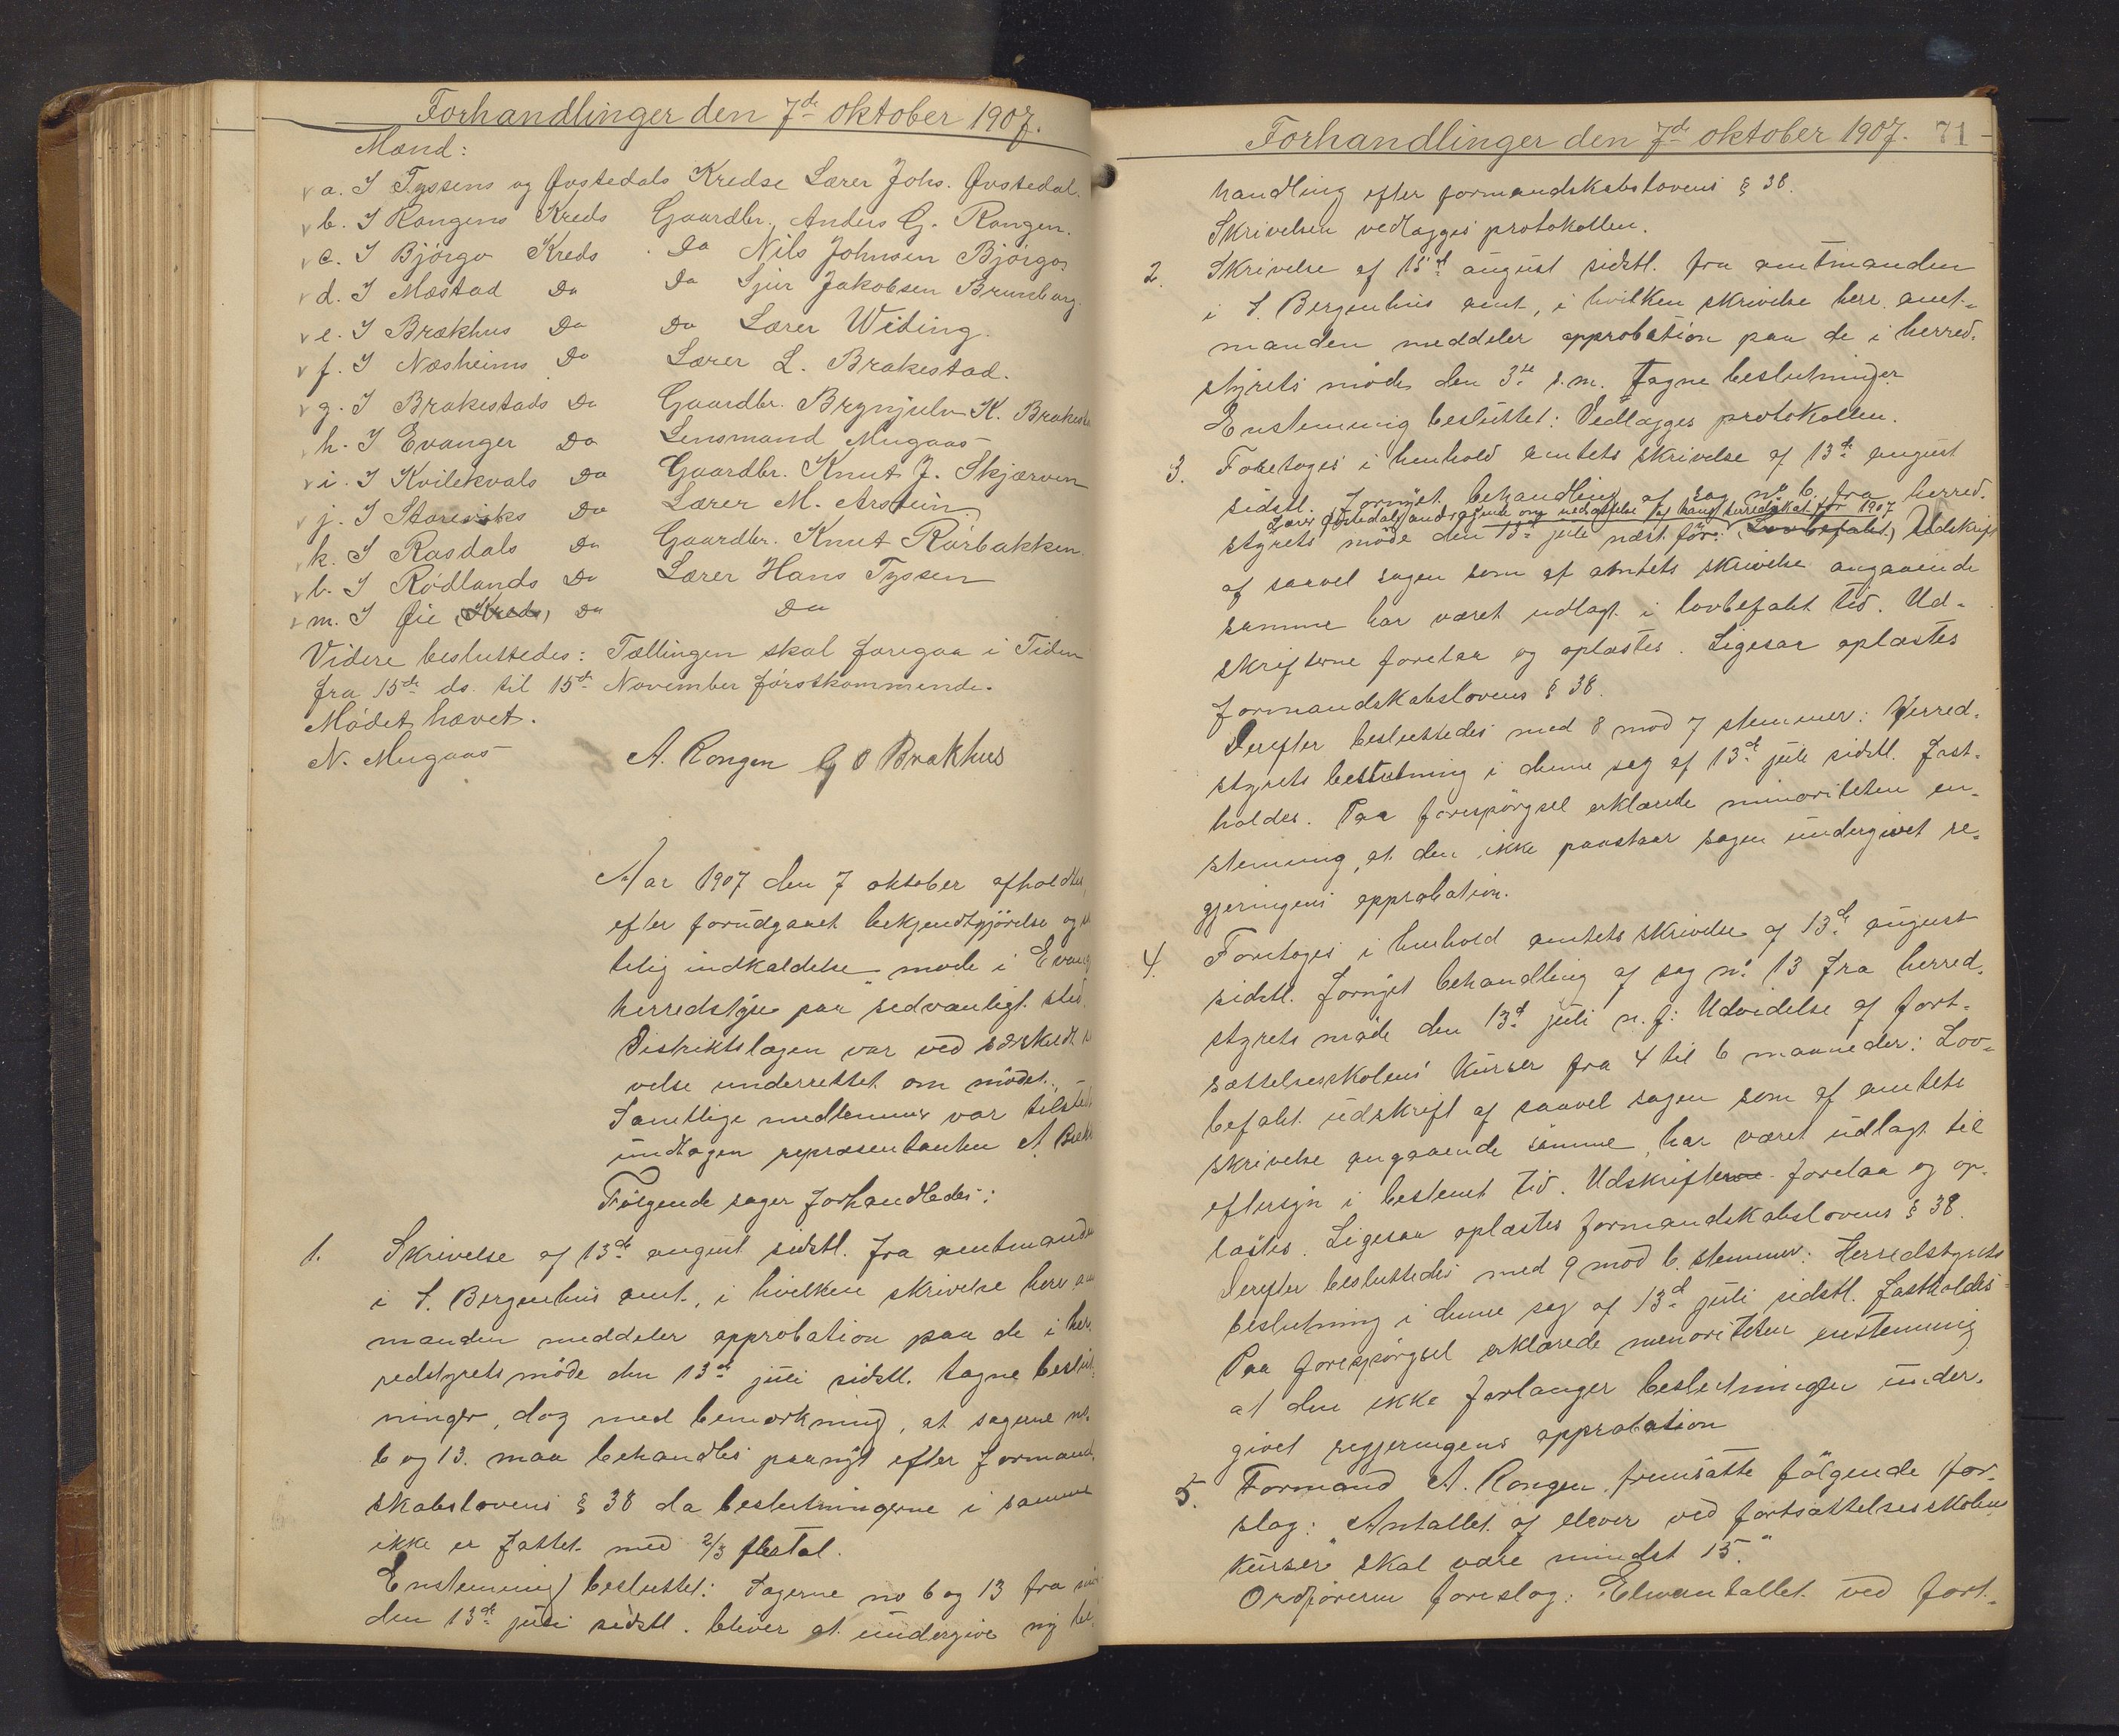 Forhandlinger den 7de oktober 1907.
Mænd:
a. I Tyssens og Øvstedals Kredse Lærer Johs. Øvstedal.
b. I Rongens Kreds Gaardbr. Anders G. Rongen.
c. I Bjørgo Kreds Do Nils Johnsen Bjørgo
d. I Mæstad Do Do Sjur Jakobsen Brunborg.
e. I Brækhus Do Do Lærer Widing.
f. I Næsheims Do Lærer L. Brakestad.
g. I Brakestads Do Gaardbr. Brynjulv K. Brakest
h. I Evanger Do Lensmand Mugaas
i. I Kvilekvals Do Gaardbr. Knut J. Skjærven
j. I Do Lærer M. Arstein
k. I Rasdals Do Gaardbr. Knut Rørbakken
l. I Rødlands Do Lærer Hans Tyssen
m. I Øie (Kreds) Do Do
Videre besluttedes: Tællingen skal foregaa i Tiden
fra 15de ds. til 15de November førstkommende.
Mødet hævet.
N. Mugaas A. Rongen G O Brækhus
Aar 1907 den 7 oktober afholdtes,
efter forudgaaet bekjendtgjörelse og
telig indkaldelse möde i Evang
herredstyre paa sedvanligt sted.
Distriktslægen var ved særskildt
velse underrettet om mödet.
Samtlige medlemmer var tilstede
undtagen repræsentanten A. Bræk
Følgende sager forhandledes:
1. Skrivelse af 13de august sidstl. fra amtmanden
i S. Bergenhus amt, i hvilken skrivelse herr am
manden meddeler approbation paa de i her
redstyrets möde den 13de juli sidstl. tagne beslut
ninger, dog med bemærkning, at sagerne no.
6 og 13. maa behandles paanyt efter formand
skabslovens § 38 da beslutningerne i samme
ikke er fattet med 2/3 flertal.
Enstemmig besluttet: Sagerne no 6 og 13 fra
den 13de juli sidstl. bliver at undergive ny be
Forhandlinger den 7de oktober 1907. 71
handling efter formandskabslovens § 38.
Skrivelsen vedlægges protokollen.
2. Skrivelse af 15de august sidstl. fra amtmanden
i S. Bergenhus amt, i hvilken skrivelse herr amt-
manden meddeler approbation paa de i herred-
styrets möde den 3de s.m. tagne beslutninger
Enstemmig besluttet: Vedlægges protokollen.
3. Foretoges i henhold amtets skrivelse af 13de august
sidstl. fornyet behandling af sag no 6 fra herred-
Lærer Øvstedals andragende om nedsættelse af hans herredsskat for 1907
styrets möde den 13de juli næst för: (Lovbefalet) Udskrift
af saavel sagen som af amtets skrivelse angaaende
samme har været udlagt i lovbefalt tid. Ud-
skrifterne forelaa og oplæstes. Ligesaa oplæstes
formandskabslovens § 38.
Derefter besluttedes med 8 mod 7 stemmer: Herred-
styrets beslutning i denne sag af 13de juli sidstl. fast-
holdes. Paa forespörgsel erklærede minoriteten en-
stemmig, at den ikke paastaar sagen undergivet re-
gjeringens approbation.
4. Foretoges i henhold amtets skrivelse af 13de august
sidstl. fornyet behandling af sag no 13 fra herred-
styrets möde den 13de juli n.f: Udvidelse af fort-
sættelsesskolens kurser fra 4 til 6 maaneder: Lov-
befalt udskrift af saavel sagen som af amtets
skrivelse angaaende samme, har været udlagt til
eftersyn i bestemt tid. Udskrifterne forelaa og op-
læstes. Ligesaa oplæstes formandskabslovens § 38.
Derefter besluttedes med 9 mod 6 stemmer: Herredstyrets
beslutning i denne sag af 13de juli sidstl. fastholdes
Paa forespörgsel erklærede minoriteten enstemmig
at den ikke forlanger beslutningen under-
givet regjeringens approbation
5. Formand A. Rongen fremsatte fölgende for-
slag: "Antallet af elever ved fortsættelsesskolens
kurser skal være mindst 15."
Ordföreren foreslog: Elevantallet ved fort-